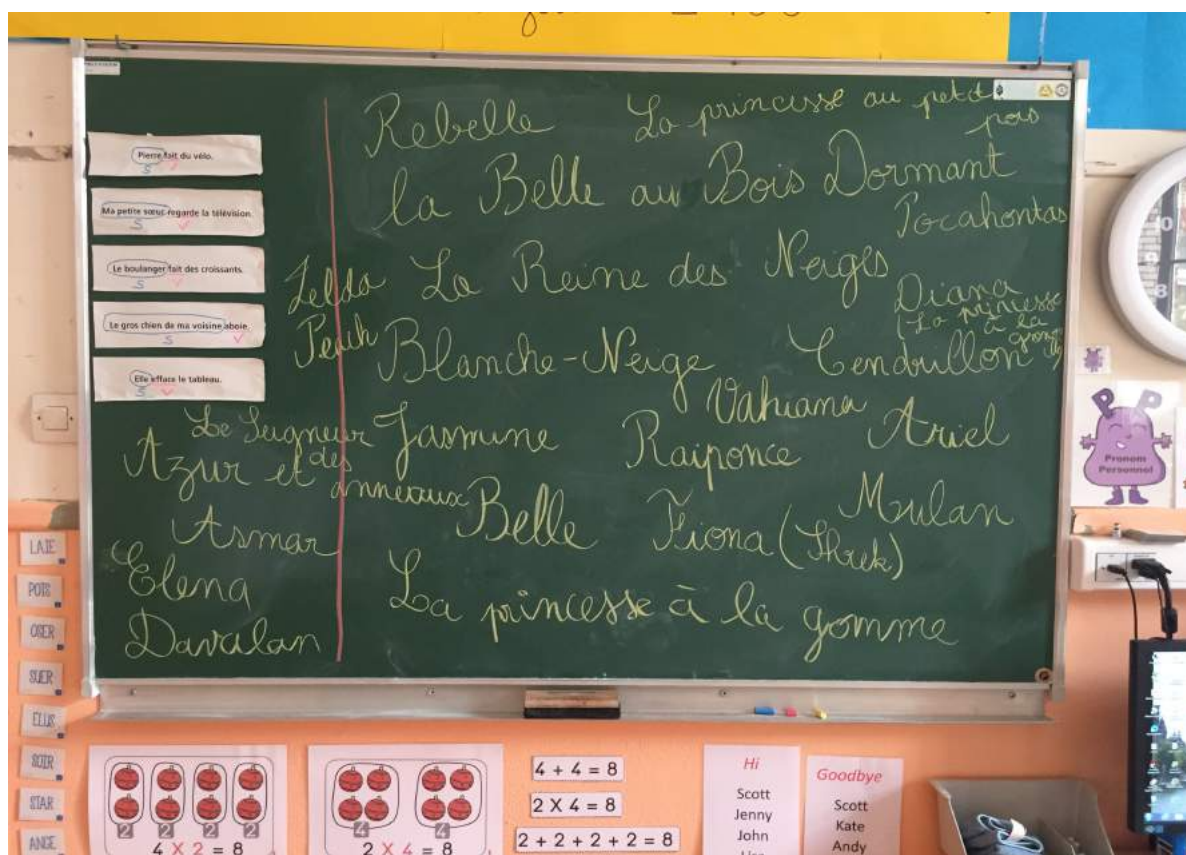 Pierre fait du vélo.
S
Ma petite sœur regarde la télévision.
S
Le boulanger fait des croissants.
S
Le gros chien de ma voisine aboie.
S
Elle efface le tableau.
S
Rebelle
La princesse au petit
pois
la Belle au Bois Dormant
Pocahontas
Zelda
La Reine des Neiges
Diana
(La princesse
à la
Peach
Blanche-Neige
Cendrillon
Vahiana
Le Seigneur
des
anneaux
Jasmine
Raiponce
Ariel
Azur et
Asmar
Belle
Fiona (Shrek)
Mulan
Elena
Davalan
La princesse à la gomme
10
9
8
Pronom
Personnel
LAIE
POTS
OSER
SUER
ELUS
SOIR
STAR
ANGE
2 2 2 2
4 X 2 = 8
4 4
2 X 4 = 8
4 + 4 = 8
2 X 4 = 8
2 + 2 + 2 + 2 = 8
Hi
Scott
Jenny
John
Goodbye
Scott
Kate
Andy